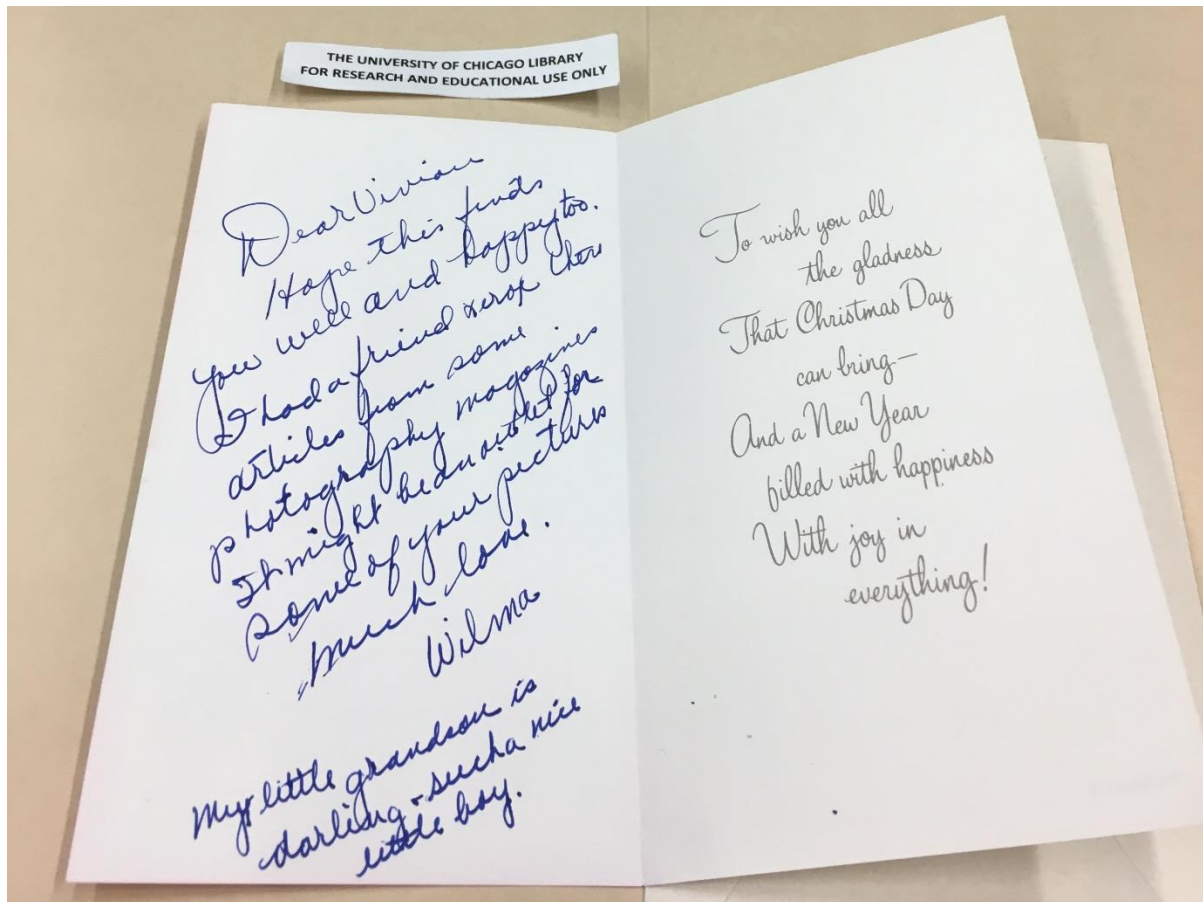 THE UNIVERSITY OF CHICAGO LIBRARY
FOR RESEARCH AND EDUCATIONAL USE ONLY
Dear Vivian
Hope this finds
you well and happy too.
I had a friend xerox
articles from some
photography magazines
It might be an outlet for
some of your pictures
much love.
Wilma
My little grandson is
darling - such a nice
little boy.
To wish you all
the gladness
That Christmas Day
can bring—
And a New Year
filled with happiness
With joy in
everything!